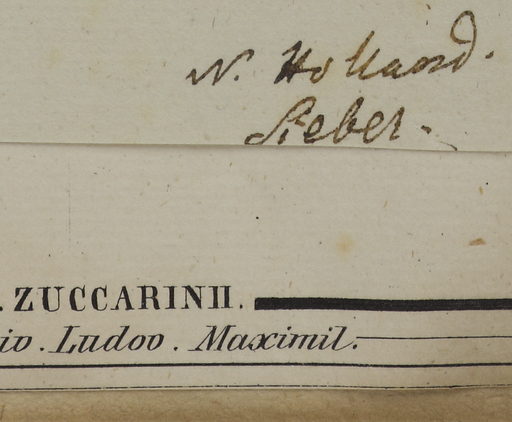 N. Holland.
Sieber.
. ZUCCARINII.
io. Ludov. Maximil.